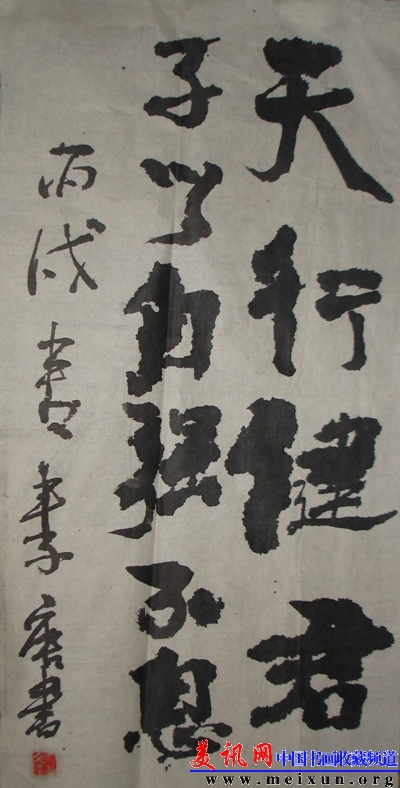 天行健君
子以自强不息
丙戌春書
美讯网 中国书画收藏频道
www.meixun.org